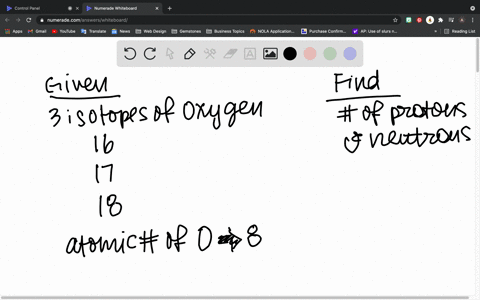 Control Panel
Numerade Whiteboard
numerade.com/answers/whiteboard/
Apps
Gmail
YouTube
Maps
Translate
News
Web Design
Gemstones
Business Topics
NOLA Application...
Purchase Confirm...
AP: Use of slurs n...
Reading List
Given
3 isotopes of oxygen
16
17
18
atomic # of O → 8
Find
# of protons
& neutrons